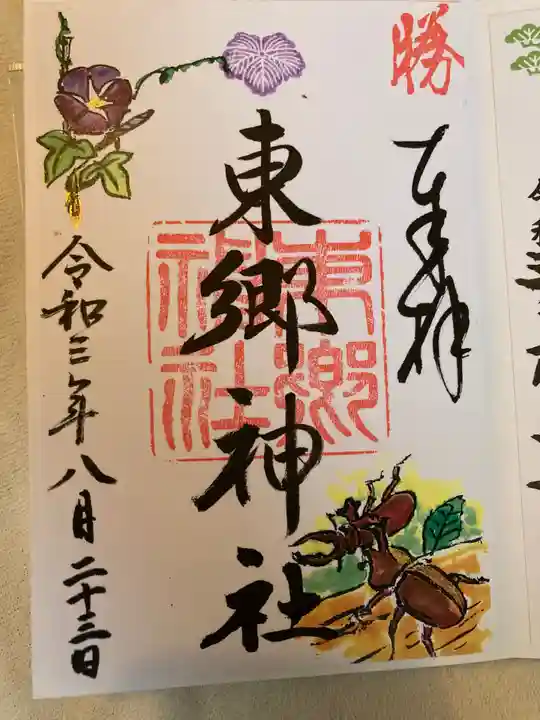 勝
奉拝
東郷神社
東郷
神社
令和三年八月二十三日
令和三